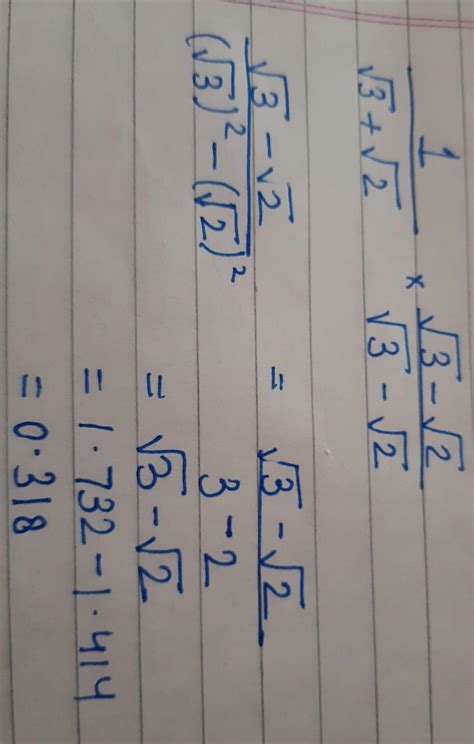 1/(√3+√2) × (√3-√2)/(√3-√2)
(√3-√2)/((√3)²-(√2)²) = (√3-√2)/(3-2)
= √3-√2
= 1.732-1.414
= 0.318